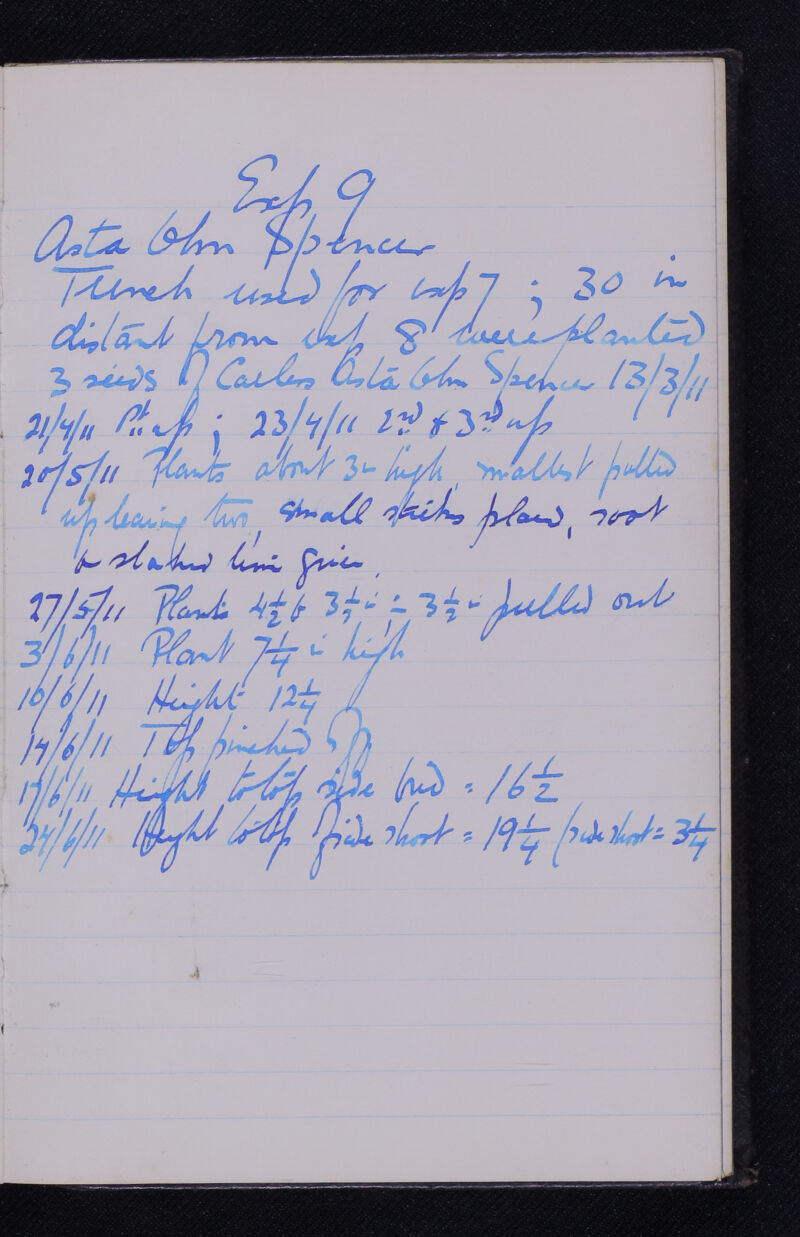 Exp 9
Asta Ohn Spencer
Trench used for exp 7 ; 30 in
distant from exp 8 were planted
3 seeds of Carters Asta Ohn Spencer 13/3/11
21/4/11 1st up ; 23/4/11 2nd & 3rd up
20/5/11 Plants about 3in high, smallest pulled
up leaving two, small sticks placed, soot
& slaked lime given.
27/5/11 Plants 4½ & 3½ in ; 3½ in pulled out
3/6/11 Plant 7¼ in high
10/6/11 Height 12¼
14/6/11 Top pinched off
17/6/11 Height to top side bud = 16½
24/6/11 Height to top side shoot = 19¼ (side shoot = 3¼